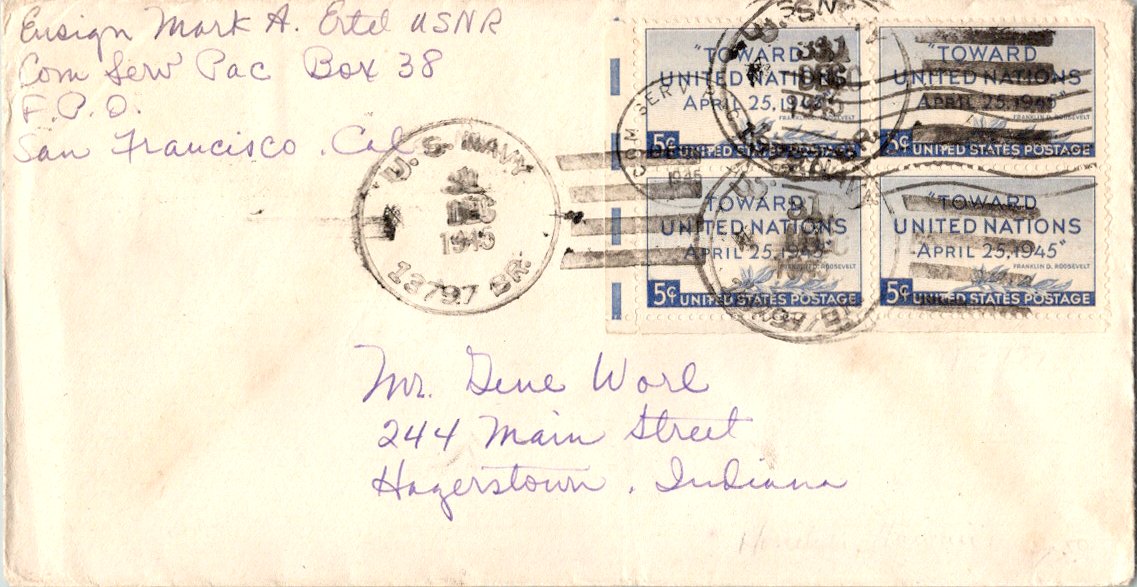 Ensign Mark A. Ertel USNR
Com Serv Pac Box 38
F.P.O.
San Francisco, Cal
U.S. NAVY
DEC
1945
13797 BR.
COM SERV
1945
"TOWARD
UNITED NATIONS
APRIL 25, 1945"
FRANKLIN D. ROOSEVELT
5¢ UNITED STATES POSTAGE
"TOWARD
UNITED NATIONS
APRIL 25, 1945"
FRANKLIN D. ROOSEVELT
5¢ UNITED STATES POSTAGE
"TOWARD
UNITED NATIONS
APRIL 25, 1945"
FRANKLIN D. ROOSEVELT
5¢ UNITED STATES POSTAGE
"TOWARD
UNITED NATIONS
APRIL 25, 1945"
FRANKLIN D. ROOSEVELT
5¢ UNITED STATES POSTAGE
31
DEC
1945
Mr. Gene Worl
244 Main Street
Hagerstown, Indiana